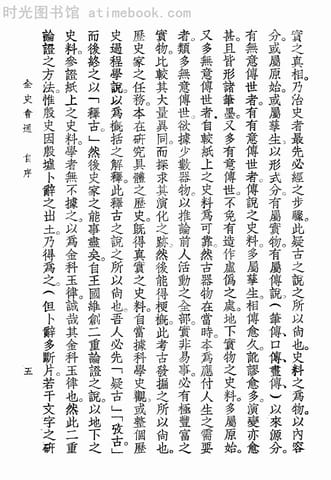 时光图书馆 atimebook.com
實之真相乃治史者最先必經之步驟。此疑古之說之所以尙也。史料之爲物。以內容
分。或屬原始。或屬孳生。以形式分。有屬實物。有屬傳說。（筆傳、口傳、畫傳、）以來源分。
有無意傳世者。有有意傳世者。傳說之史料。多屬孳生。相傳愈久。訛謬愈多。演變亦愈
甚。且皆形諸筆墨。又多有意傳世。不免有造作虛僞之處。地下實物之史料。多屬原始。
又多無意傳世者。自較紙上之史料爲可靠。然古器物在當時。本爲應付人生之需要
者。類多無意傳世。欲據少數器物。以推論前人活動之全部。實非易事。必有極豐富之
實物。比較其大量異同。而探求其演化之跡。然後能得梗概。此考古發掘之所以尙也。
歷史家之任務。本在研究具體之歷史。旣得真實之史料。自當據科學史觀。或整個歷
史過程學說。以爲概括之解釋。此釋古之說之所以尙也。吾人必先「疑古」「攷古」
而後終之以「釋古」。然後史家之能事盡矣。自王國維創二重論證之說。以地下之
史料。參證紙上之史料。學者無不據之。以爲金科玉律。誠哉其金科玉律也。然此二重
論證之方法。惟殷史因殷墟卜辭之出土。乃得爲之。（但卜辭多斷片。若干文字之硏
金史會通 自序
五
时光图书馆 atimebook.com